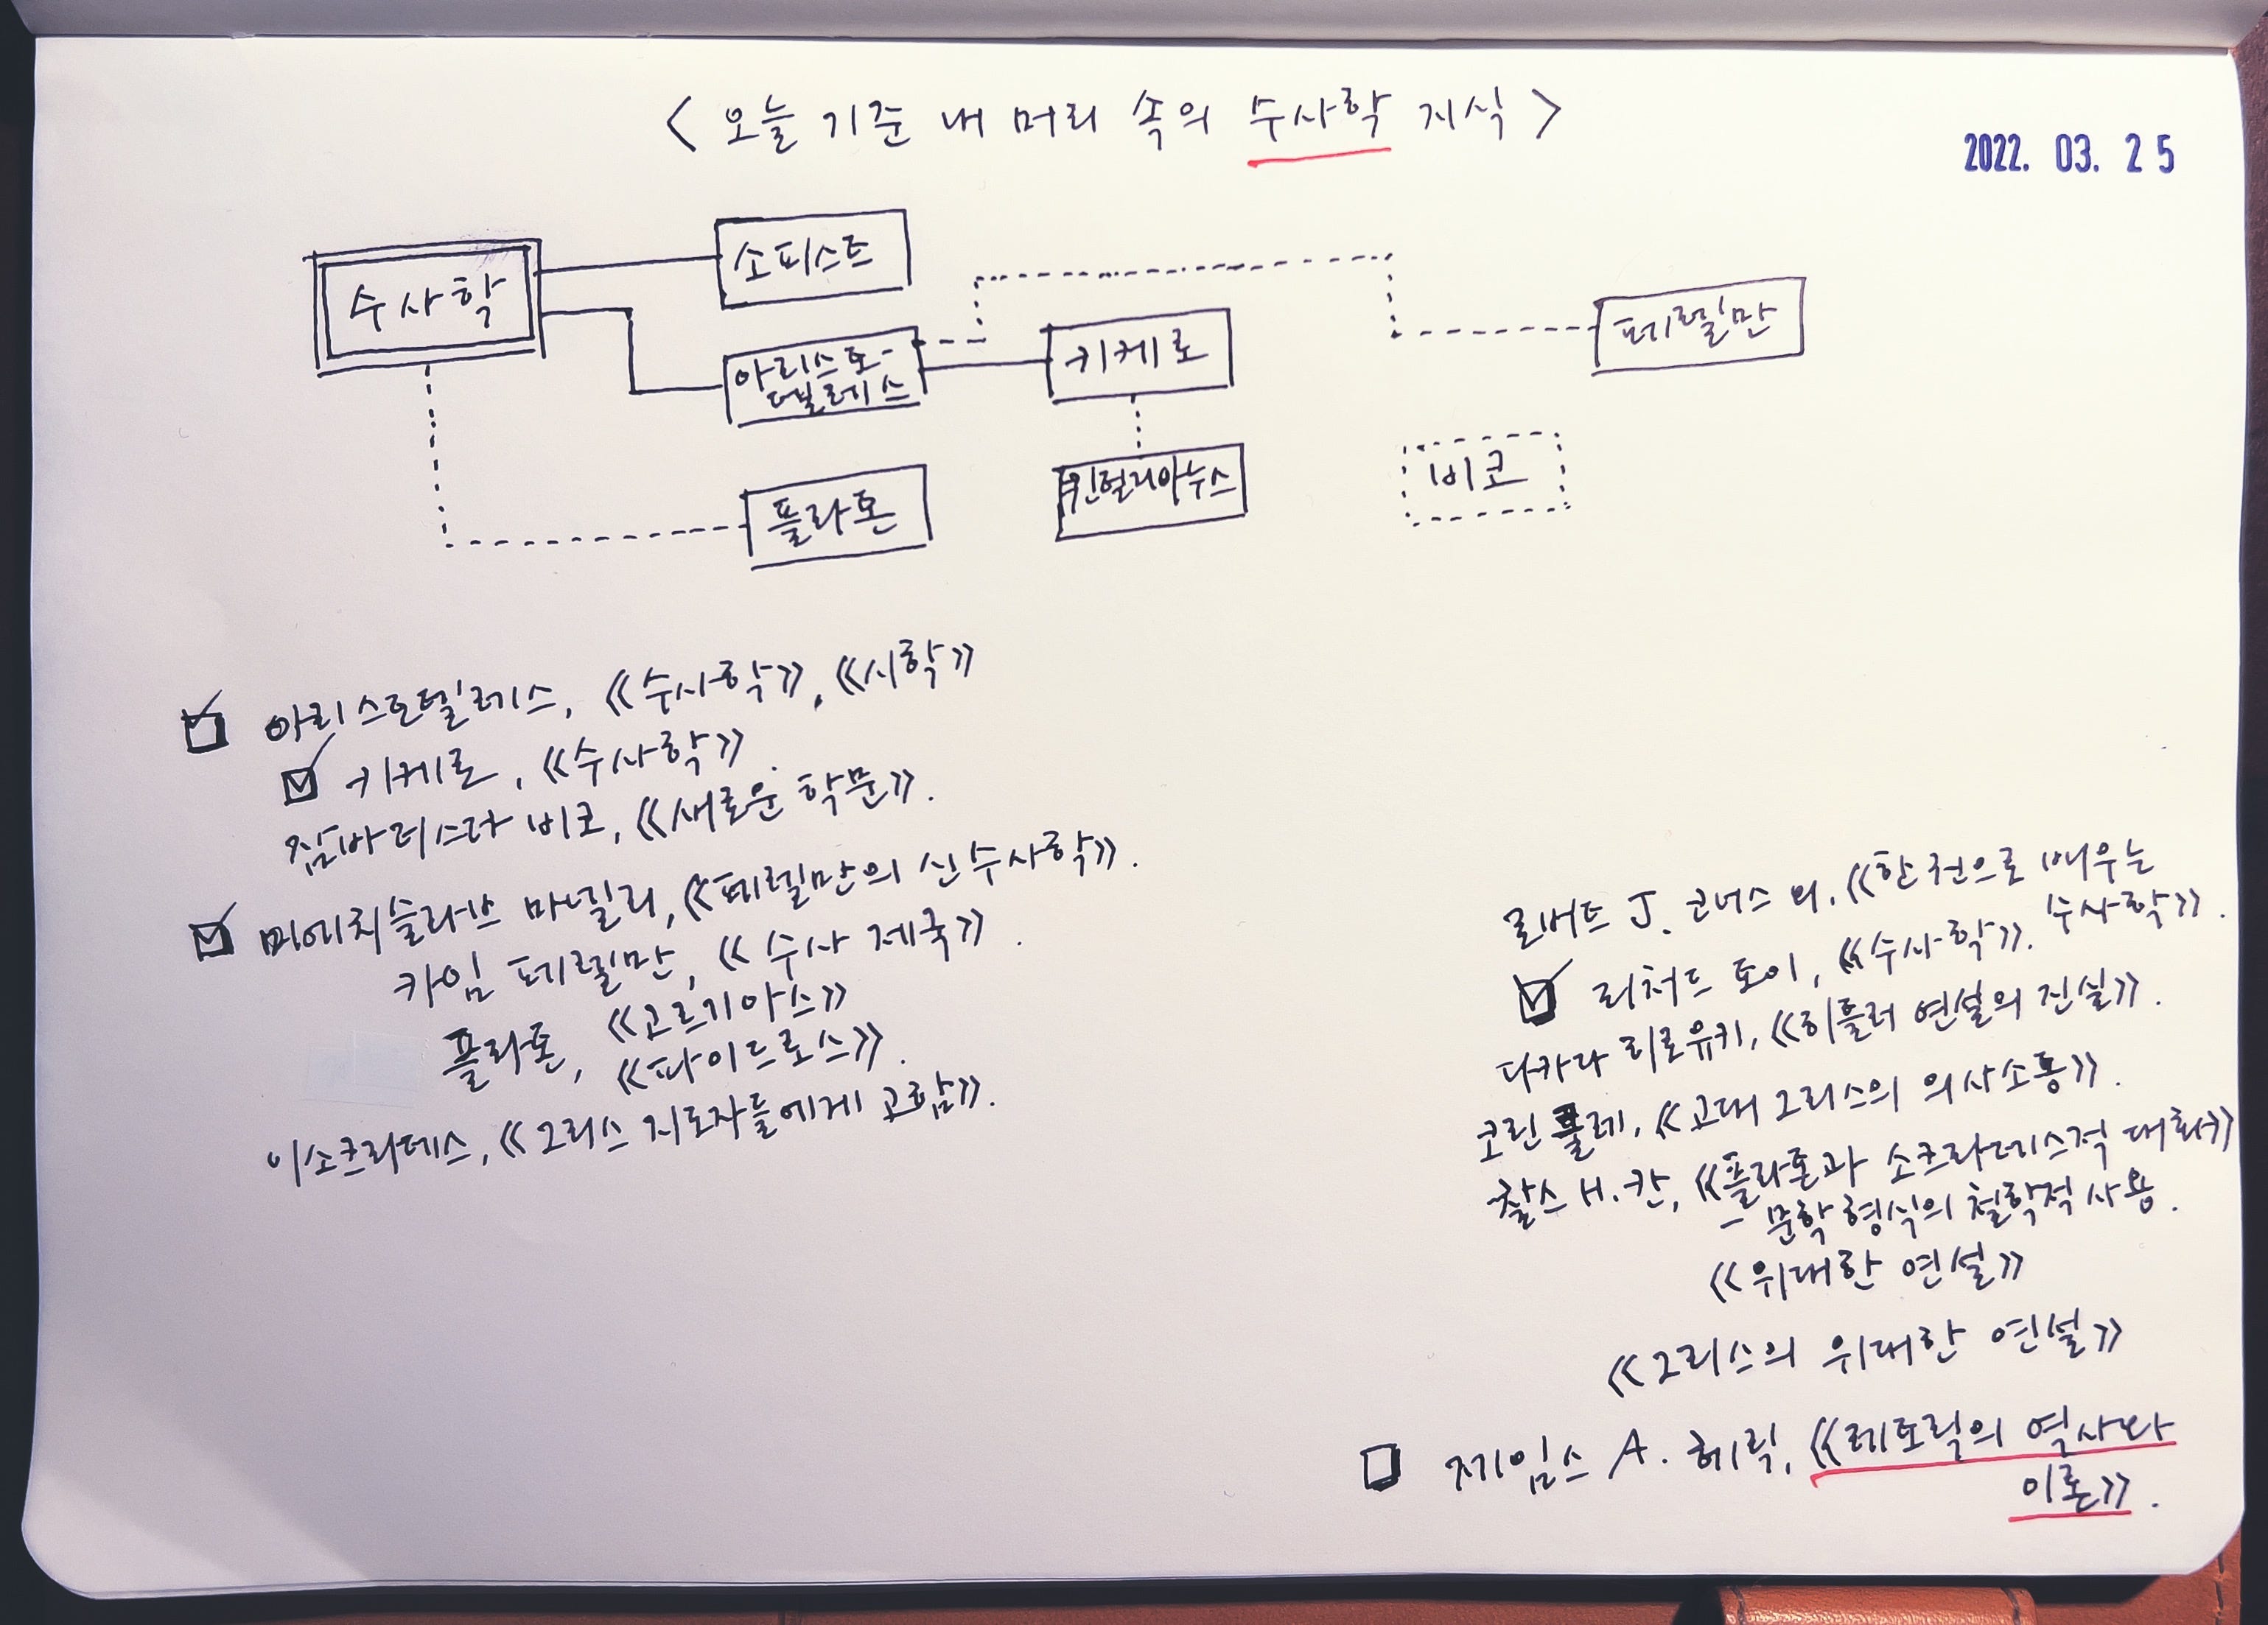 < 오늘 기준 내 머리 속의 수사학 지식 >
2022. 03. 25
수사학
소피스트
아리스토-
텔레스
키케로
페렐만
플라톤
퀸틸리아누스
비코
아리스토텔레스, 《수사학》, 《시학》
키케로, 《수사학》.
잠바티스타 비코, 《새로운 학문》.
미에치슬라브 마넬리, 《페렐만의 신수사학》.
카임 페렐만, 《수사 제국》.
플라톤, 《고르기아스》
《파이드로스》.
이소크라테스, 《그리스 지도자들에게 고함》.
로버트 J. 코너스 외, 《한 권으로 배우는
수사학》.
리처드 토이, 《수사학》.
다카다 히로유키, 《히틀러 연설의 진실》.
코린 쿨레, 《고대 그리스의 의사소통》.
찰스 H. 칸, 《플라톤과 소크라테스적 대화》
- 문학 형식의 철학적 사용.
《위대한 연설》
《그리스의 위대한 연설》
제임스 A. 헤릭, 《레토릭의 역사와
이론》.